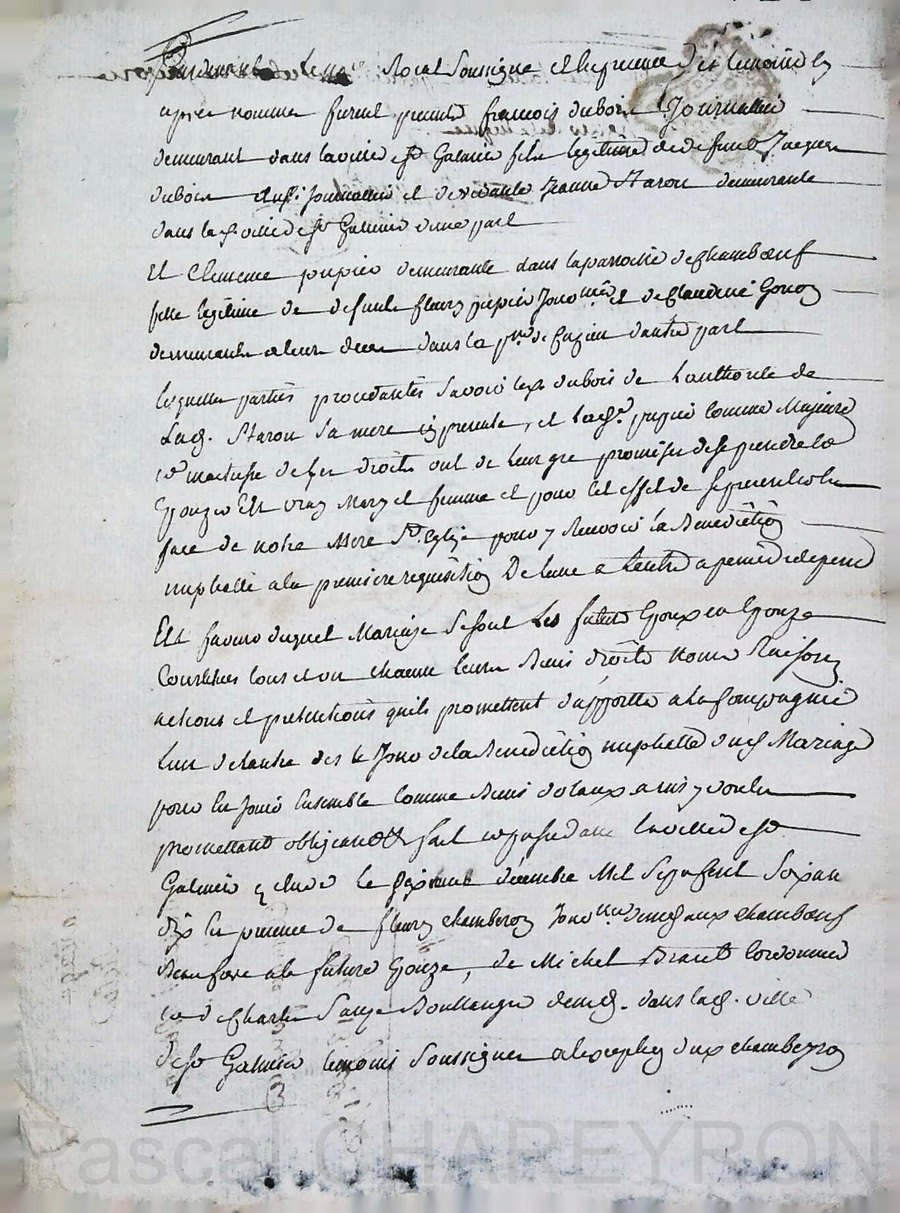 Pardevant le no.re Royal Soussigne et en presence des temoins cy
apres nommes furent presents francois dubois Journallier
demeurant dans la ville de St Galmier fils legitime de defunt Jacques
dubois aussi Journallier et de vivante Jeanne Staron demeurante
dans lad ville de St Galmier d'une part
Et Clemence pupier demeurante dans la parroisse de Chambœuf
fille legitime de defunt fleury pupier Jour et de Claudine Gonon
demeurante a leur deces dans la p.sse de d'autre part
lesquelles parties procedantes Savoir led dubois de Lauthorité de
Lad. Staron Sa mere cy presente, et lad. pupier comme Majeure
et maitresse de ses droits ont de leur gre promis de se prendre
Epouzer Et vray Mary et femme et pour Cet effet de se presenter en
face de notre Mere Ste Eglise pour y Recevoir la Benediction
nuptialle a la premiere requisition De lune a Lautre a peine de depend
Et faveur duquel Mariage se sont Les futurs Epoux et Epouze
Constitues tous et un chacun leurs Biens droits noms Raisons
actions et pretentions qu'ils promettent d'apporter a la Compagnie
Lun de lautre des le Jour de la Benediction nuptialle dud Mariage
pour en Jouir Ensemble comme Biens dotaux ainsy voulu
promettant obligeant &a fait et passé dans la ville de St
Galmier Etude le decembre Mil Sept Cent Soixante
dix En presence de fleury chambeyron Jour demt aud chambœuf
Beaufrere a la future Epouze, de Michel Cordonnier
et de Charles Boullanger demt. dans lad. ville
de St Galmier temoins Soussignes a lexception dud chambeyron
Pascal CHAREYRON